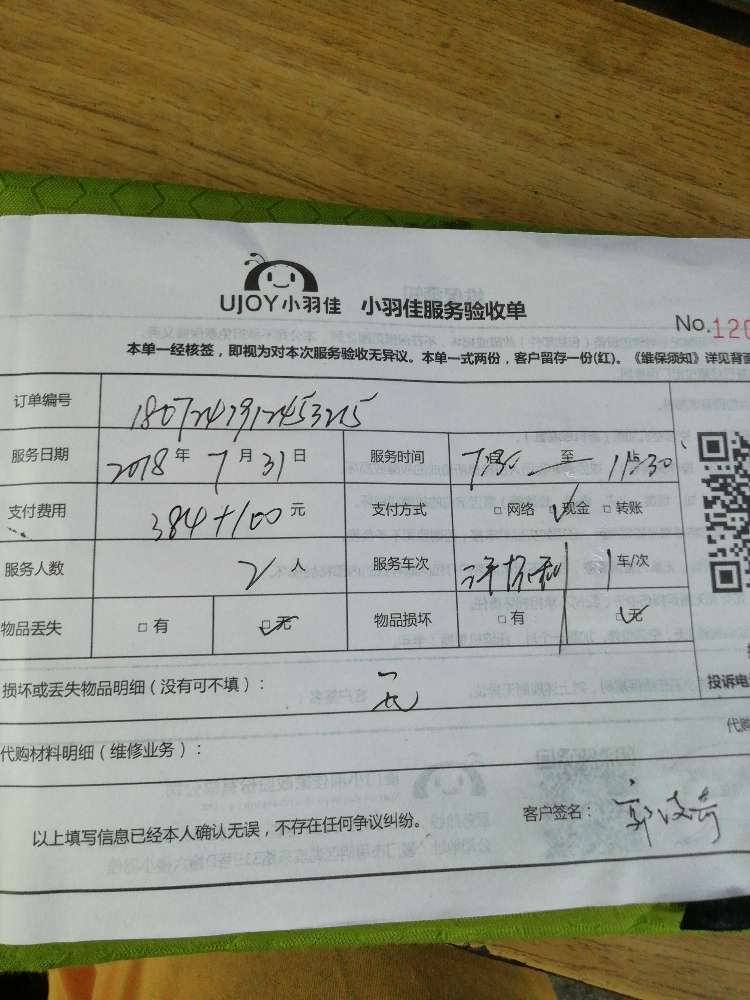 UJOY小羽佳 小羽佳服务验收单
No.120
本单一经核签，即视为对本次服务验收无异议。本单一式两份，客户留存一份(红)。《维保须知》详见背面
订单编号
服务日期 2018 年 7 月 31 日 服务时间 7点30 至 11点30
支付费用 384+100 元 支付方式 □ 网络 ☑ 现金 □ 转账
服务人数 2 人 服务车次 1 车/次
物品丢失 □ 有 ☑ 无 物品损坏 □ 有 ☑ 无
损坏或丢失物品明细（没有可不填）： 无
投诉电
代购材料明细（维修业务）：
代购
以上填写信息已经本人确认无误，不存在任何争议纠纷。 客户签名：